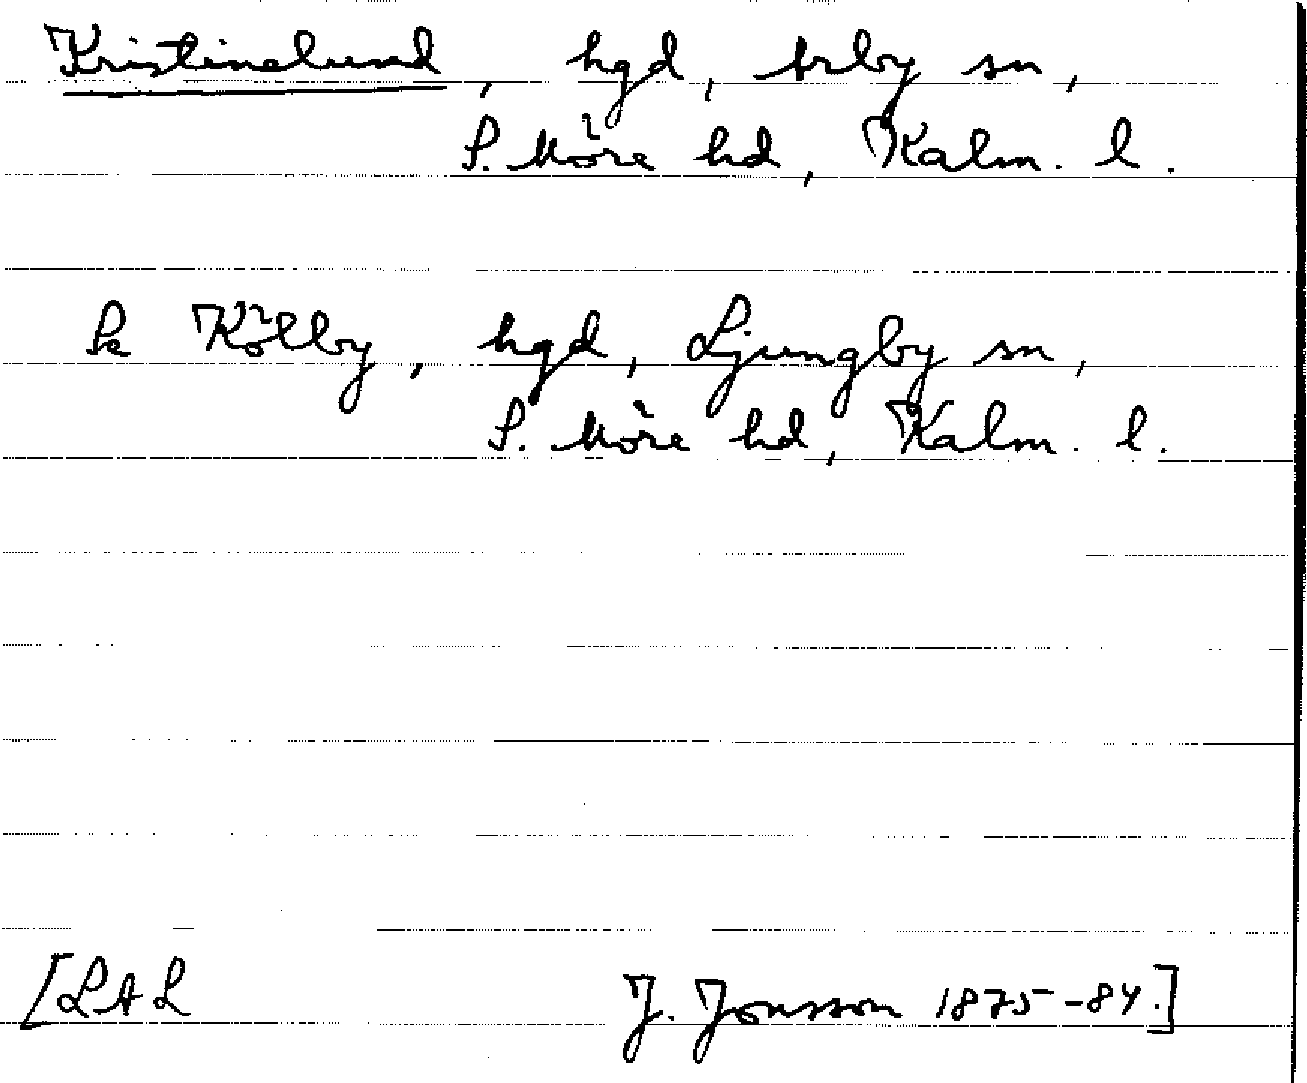 Kristinelund, hgd, Arby sn,
S. Möre hd, Kalm. l.
Se Kölby, hgd, Ljungby sn,
S. Möre hd, Kalm. l.
[LAL J. Jonsson 1875-84.]